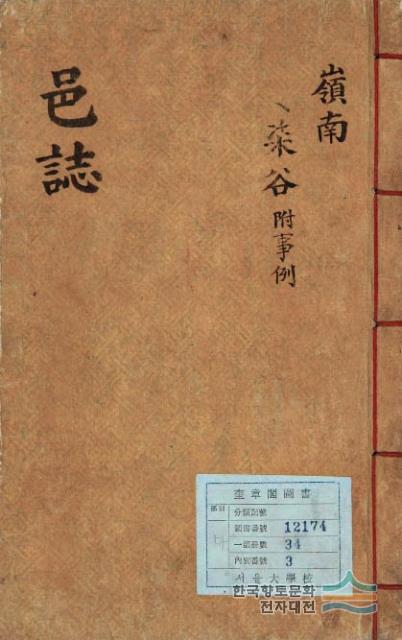 嶺南
柒谷 附事例
邑誌
奎章閣圖書
分類記號
圖書番號 12174
一部冊數 34
3
서울大學校
한국향토문화
전자대전